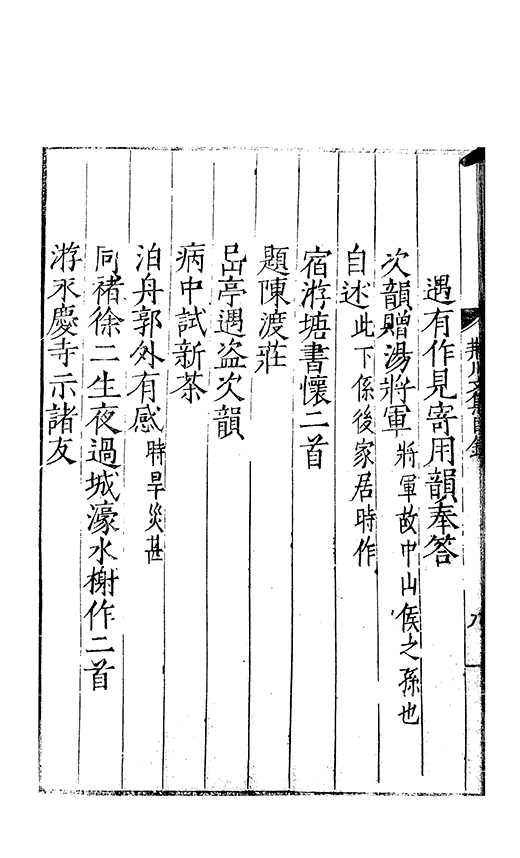 遇有作見寄用韻奉答
次韻贈湯將軍 將軍故中山侯之孫也
自述 此下係後家居時作
宿游塘書懷二首
題陳渡莊
嵒亭遇盜次韻
病中試新茶
泊舟郭外有感 時旱災甚
同褚徐二生夜過城濠水榭作二首
游永慶寺示諸友
荆川文集目錄